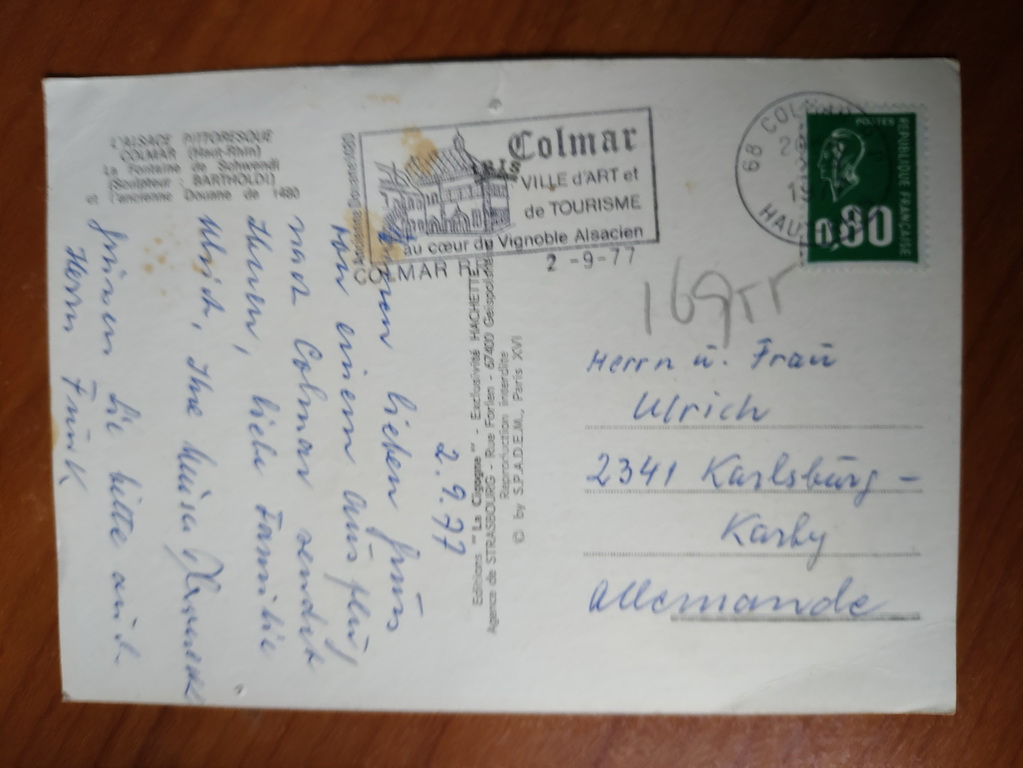 L'ALSACE PITTORESQUE
COLMAR (Haut-Rhin)
La Fontaine de Schwendi
(Sculpteur : BARTHOLDI)
et l'ancienne Douane de 1480
2.9.77
lieben Gruß
von einem Ausflug
nach Colmar sendet
Ihnen, liebe Familie
Ulrich, Ihre Luisa
Grüßen Sie bitte auch
Herrn Funk
Editions "La Cigogne" - Exclusivité HACHETTE
Agence de STRASBOURG - Rue Forlen - 67400 Geispolsheim
Reproduction interdite
© by S.P.A.D.E.M., Paris XVI
Colmar
VILLE d'ART et
de TOURISME
au cœur du Vignoble Alsacien
COLMAR
2 -9-77
68 COLMAR
HAUT
POSTES
REPUBLIQUE FRANÇAISE
0,80
Herrn u. Frau
Ulrich
2341 Karlsburg-
Karby
Allemande